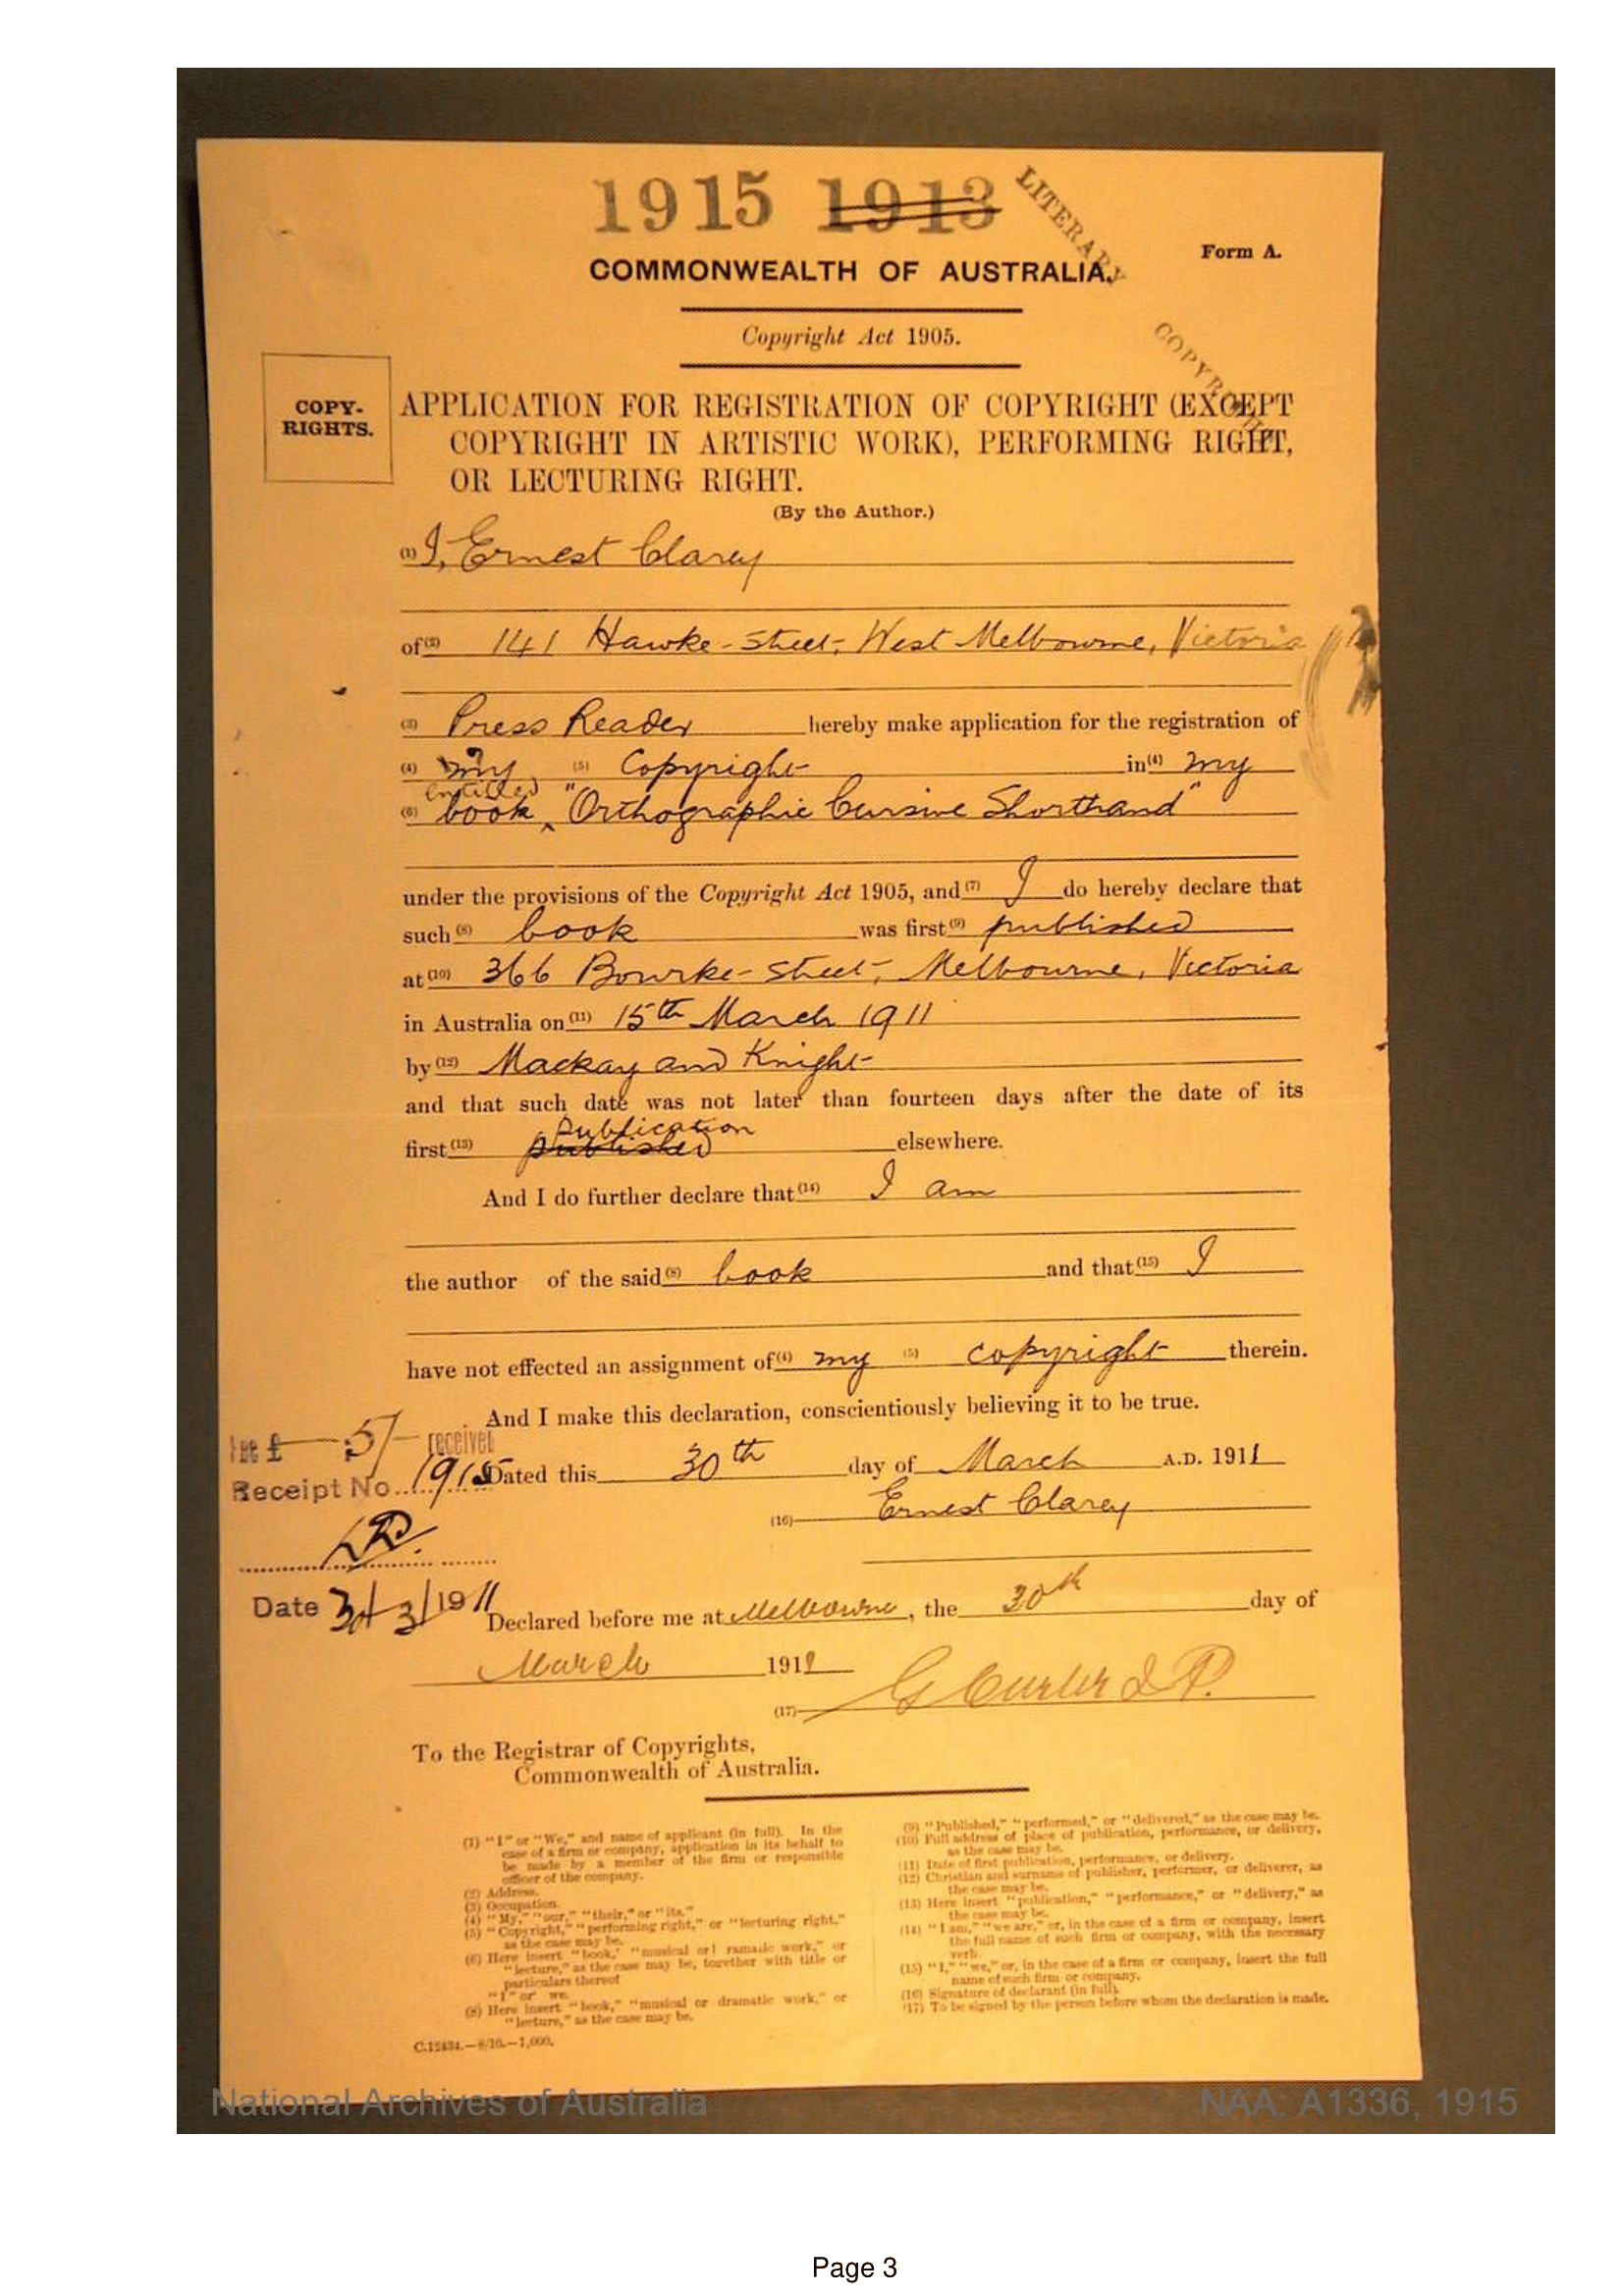 1915 1913
LITERARY
Form A.
COMMONWEALTH OF AUSTRALIA.
Copyright Act 1905.
COPYRIGHT
COPY-
RIGHTS.
APPLICATION FOR REGISTRATION OF COPYRIGHT (EXCEPT
COPYRIGHT IN ARTISTIC WORK), PERFORMING RIGHT,
OR LECTURING RIGHT.
(By the Author.)
(1) I, Ernest Clarey
of (2) 141 Hawke-Street, West Melbourne, Victoria
(3) Press Reader hereby make application for the registration of
(4) my (5) Copyright in (4) my
entitled
(6) book "Orthographic Cursive Shorthand"
under the provisions of the Copyright Act 1905, and (7) I do hereby declare that
such (8) book was first (9) published
at (10) 366 Bourke-Street, Melbourne, Victoria
in Australia on (11) 15th March 1911
by (12) Mackay and Knight
and that such date was not later than fourteen days after the date of its
Publication
first (13) published elsewhere.
And I do further declare that (14) I am
the author of the said (8) book and that (15) I
have not effected an assignment of (4) my (5) copyright therein.
And I make this declaration, conscientiously believing it to be true.
Fee £ 5/- received
Receipt No. 1915
Dated this 30th day of March A.D. 1911
(16) Ernest Clarey
Date 30/3/1911
Declared before me at Melbourne, the 30th day of
March 1911
(17) G Curler J.P.
To the Registrar of Copyrights,
Commonwealth of Australia.
(1) "I" or "We," and name of applicant (in full). In the
case of a firm or company, application in its behalf to
be made by a member of the firm or responsible
officer of the company.
(2) Address.
(3) Occupation.
(4) "My," "our," "their," or "its."
(5) "Copyright," "performing right," or "lecturing right,"
as the case may be.
(6) Here insert "book," "musical or ramatic work," or
"lecture," as the case may be, together with title or
particulars thereof
"I" or we.
(8) Here insert "book," "musical or dramatic work," or
"lecture," as the case may be.
(9) "Published," "performed," or "delivered," as the case may be.
(10) Full address of place of publication, performance, or delivery,
as the case may be.
(11) Date of first publication, performance, or delivery.
(12) Christian and surname of publisher, performer, or deliverer, as
the case may be.
(13) Here insert "publication," "performance," or "delivery," as
the case may be.
(14) "I am," "we are," or, in the case of a firm or company, insert
the full name of such firm or company, with the necessary
verb.
(15) "I," "we," or, in the case of a firm or company, insert the full
name of such firm or company.
(16) Signature of declarant (in full).
(17) To be signed by the person before whom the declaration is made.
C.12434.—8/10.—1,000.
National Archives of Australia
NAA: A1336, 1915
Page 3